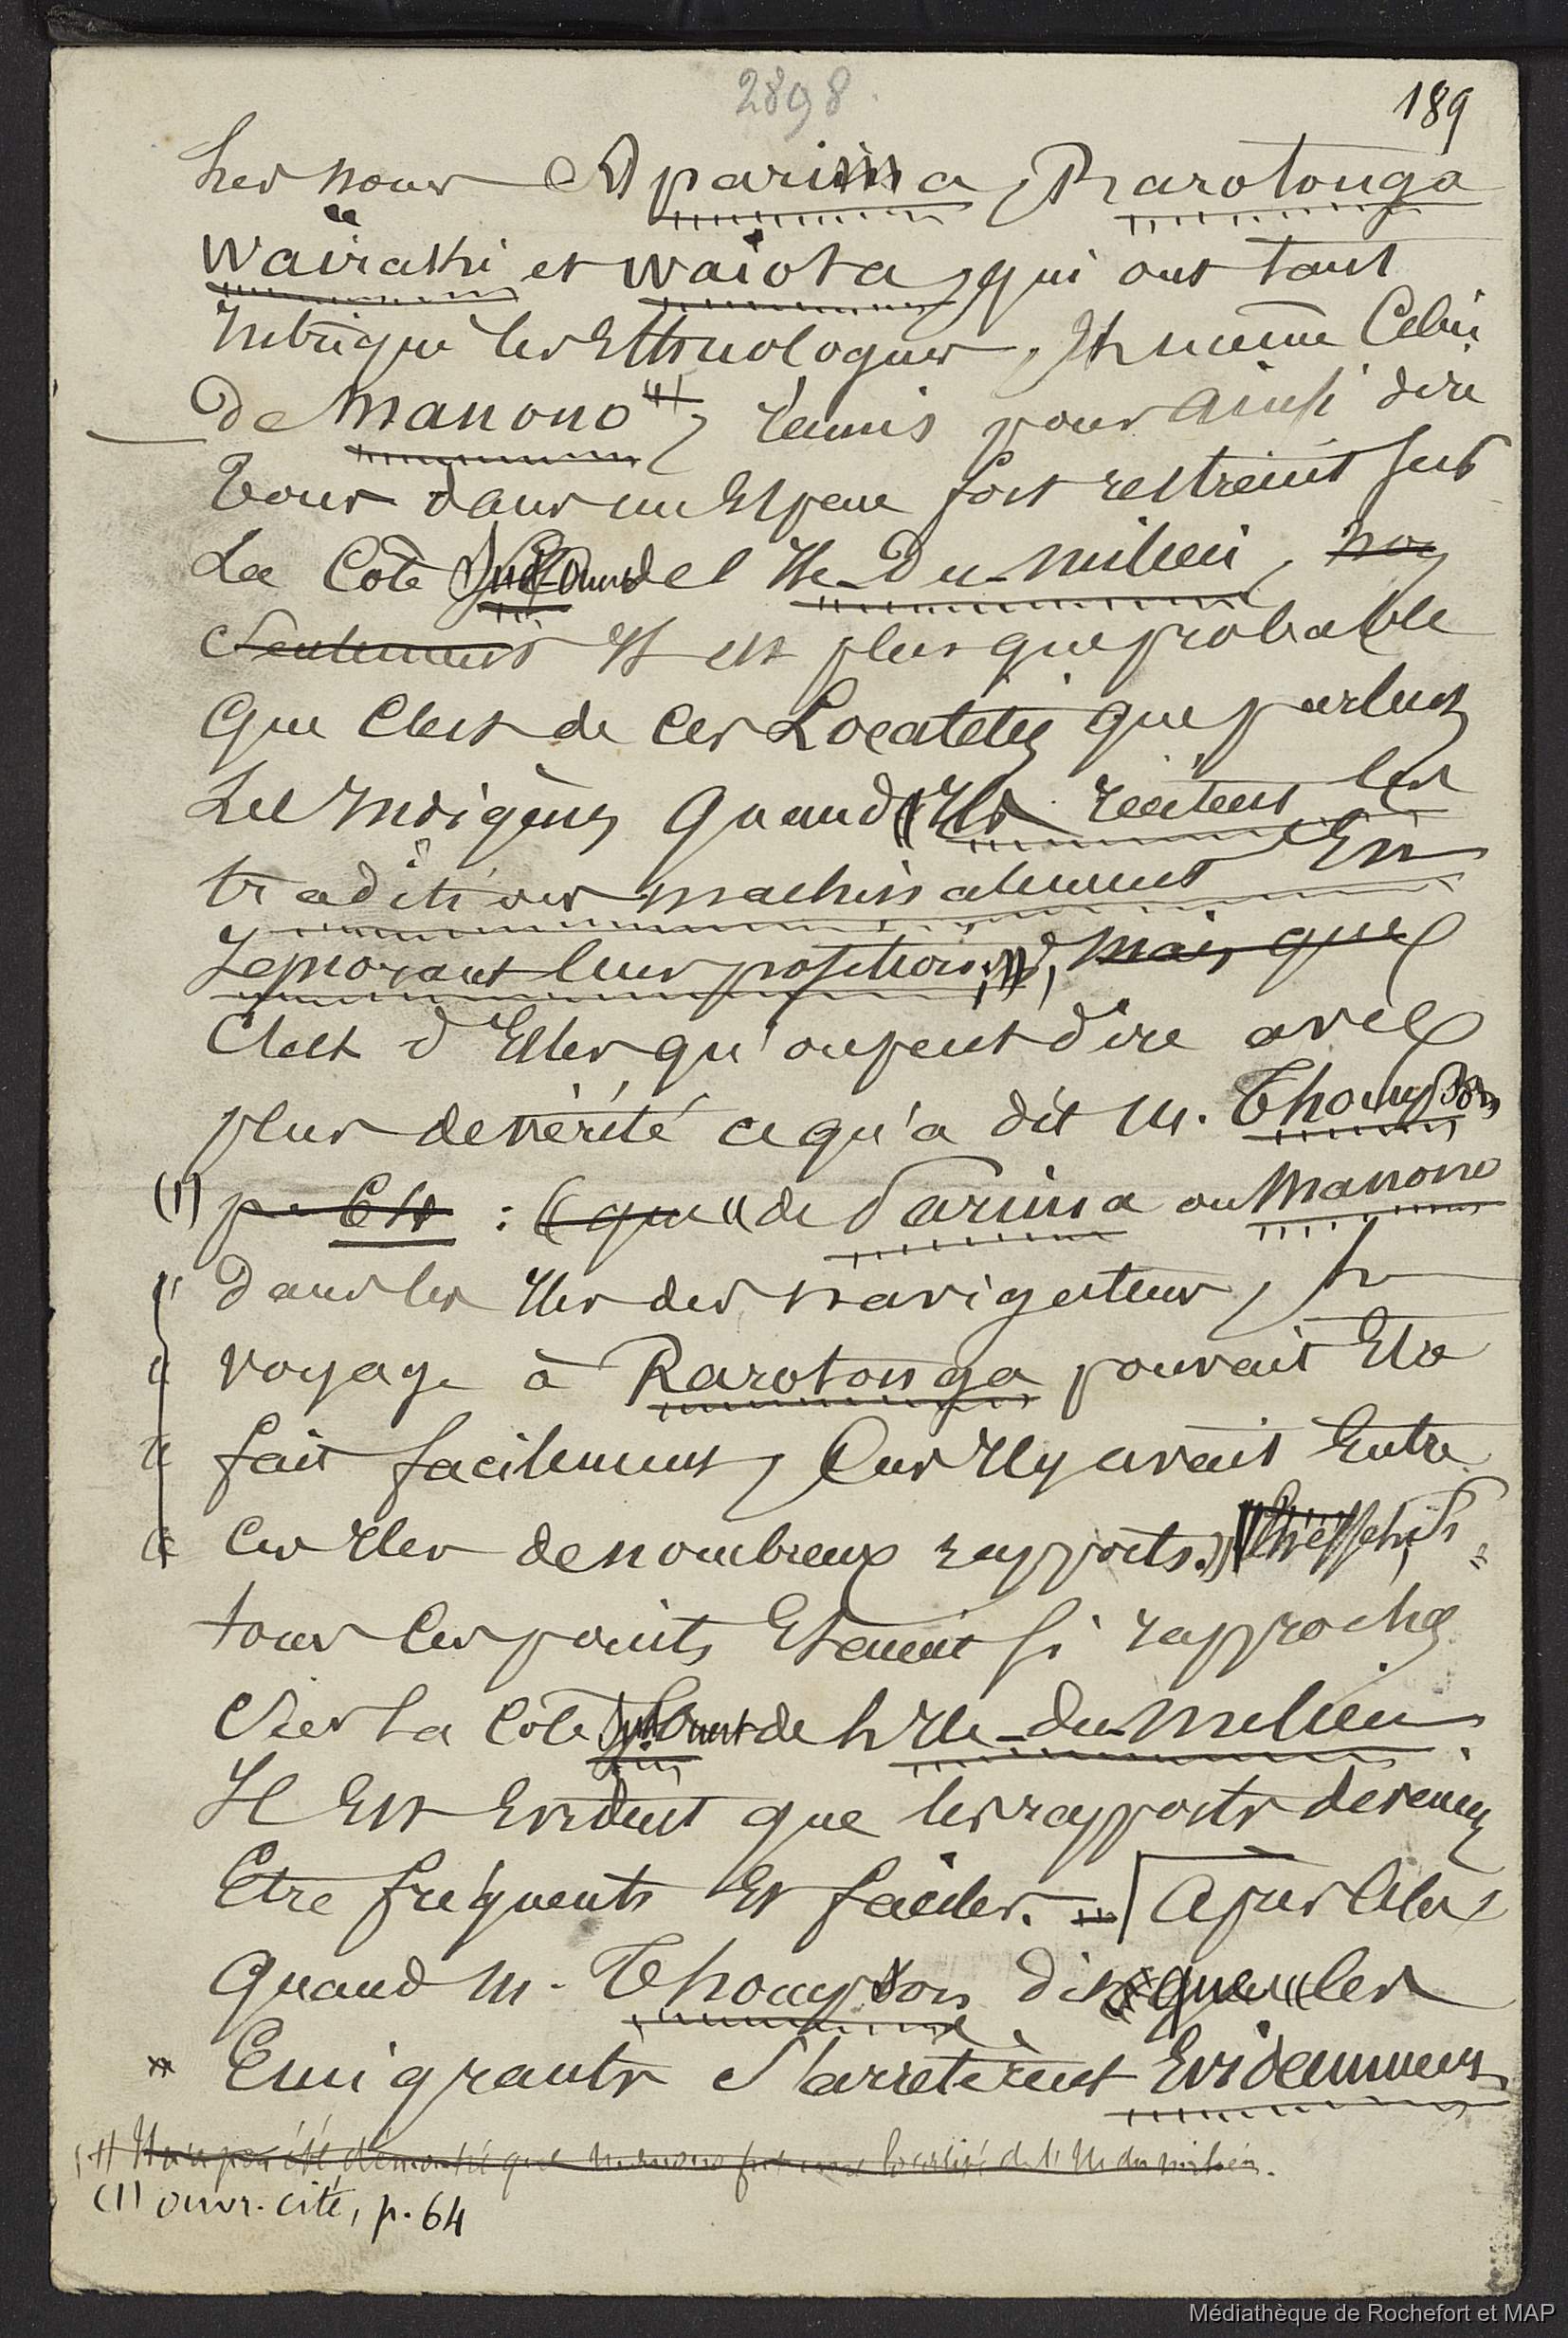 2898
189
Les noms Aparima, Rarotonga
Wairaki et Waiota, qui ont tant
intrigué les Ethnologues, et même celui
de Manono (1), réunis pour ainsi dire
tous dans un Espace fort restreint sur
la Côte de l'Ile-du-milieu, non
seulement Il est plus que probable
que c'est de ces Localités que parlent
les Indigènes quand Ils récitent les
traditions machinalement En
Ignorant leur position, mais que
C'est d'Elles qu'on peut dire avec
plus de vérité ce qu'a dit M. Thompson
(1) p. 64 : que « de Parima ou Manono
" dans les Iles des navigateurs, le
" voyage à Rarotonga pouvait Etre
" fait facilement, Car Il y avait Entre
" Ces Iles de nombreux rapports. »
tous ces points Etaient si rapprochés
sur la Côte de l'Ile-du-milieu
Il Est Evident que les rapports devaient
Etre fréquents Et faciles. - Après cela
quand M. Thompson dit que « les
Emigrants s'arrêtèrent Evidemment
(1) Il n'a pas été démontré que Manono fut une localité de l'Ile du milieu.
(1) ouvr. cité, p. 64
Médiathèque de Rochefort et MAP